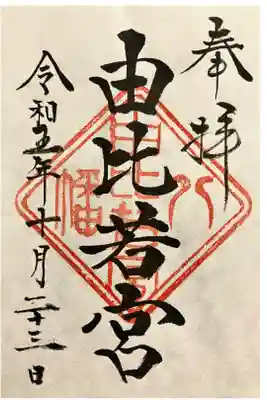 奉拝
八
由比若宮
幡
令和五年十月二十三日